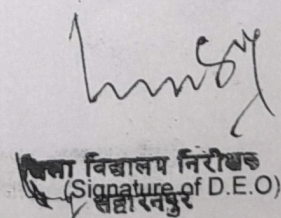 जिला विद्यालय निरीक्षक
(Signature of D.E.O)
सहारनपुर